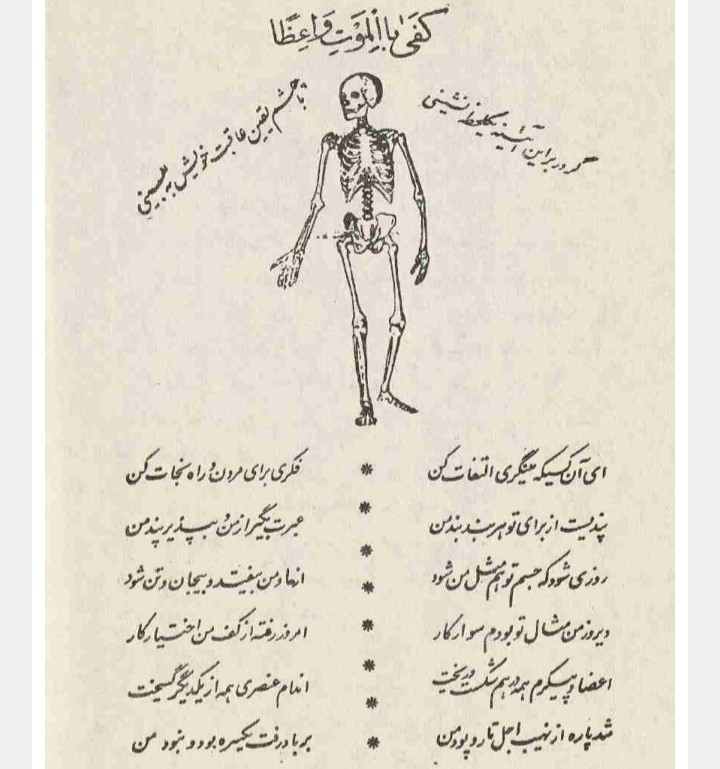 كَفىٰ بِالْمَوْتِ وَاعِظًا
گر در بر این آئینه یکلحظه نشینی
با چشم یقین عاقبت خویش به بینی
ای آن کسیکه مینگری التفات کن * فکری برای مردن و راه نجات کن
پندیست از برای تو هر بند بند من * عبرت بگیر از من و بپذیر پند من
روزی شود که جسم تو هم مثل من شود * اعضا و من بیفتد و بیجان و تن شود
دیروز من مثال تو بودم سوار کار * امروز رفته از کف من اختیار کار
اعضا و پیکرم همه در هم شکست و ریخت * اندام عنصری همه از یکدیگر گسیخت
شد پاره از نهیب اجل تار و پود من * بر باد رفت یکسره بود و نبود من